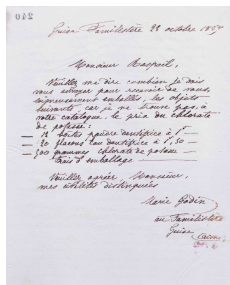 Guise Familistère 28 octobre 1887
Monsieur Raspail,
Veuillez me dire combien je dois
vous envoyer pour recevoir de vous,
soigneusement emballés, les objets
suivants car je ne trouve pas, à
votre catalogue, le prix du chlorate
de potasse :
12 boîtes poudre dentifrice à 1"
20 flacons eau dentifrice à 1,50
500 grammes chlorate de potasse
frais d'emballage
Veuillez agréer Monsieur,
mes civilités distinguées
Marie Godin
au Familistère
Guise